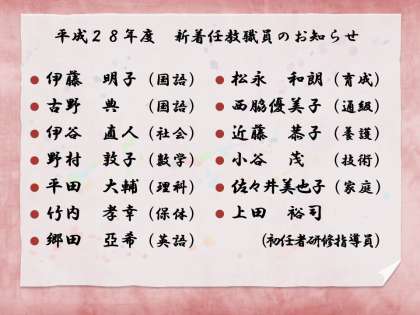 平成２８年度　新着任教職員のお知らせ
●伊藤　明子（国語）
●古野　典　（国語）
●伊谷　直人（社会）
●野村　敦子（数学）
●平田　大輔（理科）
●竹内　孝幸（保体）
●郷田　亞希（英語）
●松永　和朗（育成）
●西脇優美子（通級）
●近藤　恭子（養護）
●小谷　茂　（技術）
●佐々井美也子（家庭）
●上田　裕司
（初任者研修指導員）